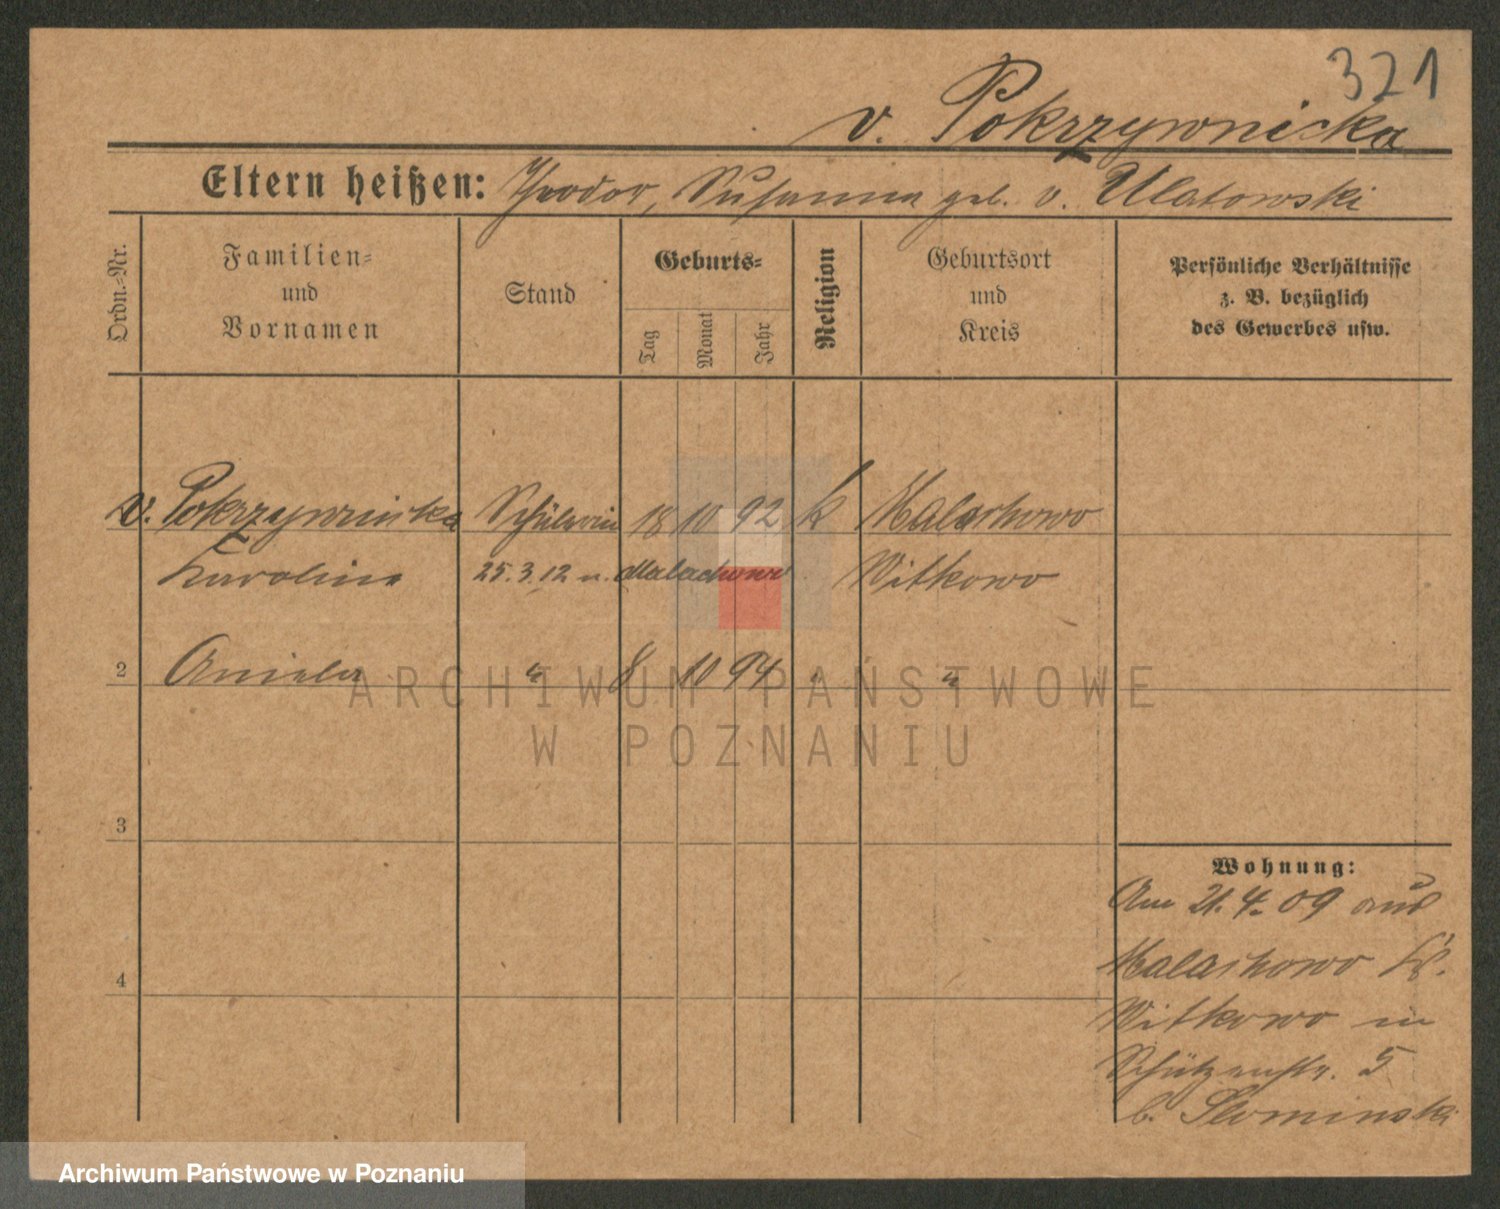 321
v. Pokrzywnicka
Eltern heißen: Theodor, Susanna geb. v. Ulatowski
Ordn.-Nr.
Familien-
und
Vornamen
Stand
Geburts-
Tag
Monat
Jahr
Religion
Geburtsort
und
Kreis
Persönliche Verhältnisse
z. B. bezüglich
des Gewerbes usw.
v. Pokrzywnicka Schülerin 18 10 92 k Malachowo
Karoline 25.3.12 n. Malachowo Witkowo
2 Aniela " 8 10 94 " "
ARCHIWUM PAŃSTWOWE
W POZNANIU
3
4
Wohnung:
Am 21.4.09 aus
Malachowo Kr.
Witkowo in
Schützenstr. 5
b. Slominski
Archiwum Państwowe w Poznaniu